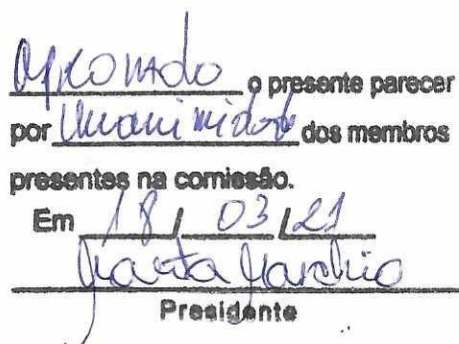 Aprovado o presente parecer
por Unanimidade dos membros
presentes na comissão.
Em 18 / 03 / 21
Presidente